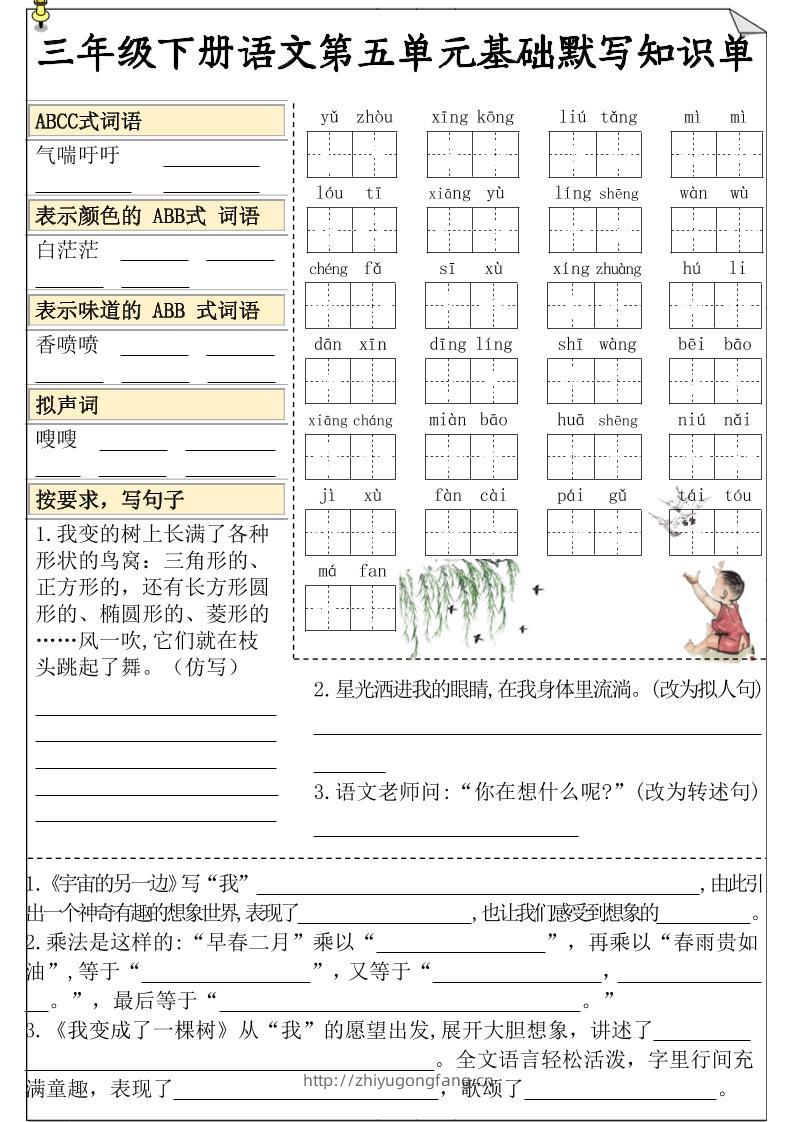 三年级下册语文第五单元基础默写知识单
ABCC式词语
气喘吁吁
表示颜色的 ABB式 词语
白茫茫
表示味道的 ABB 式词语
香喷喷
拟声词
嗖嗖
按要求，写句子
1.我变的树上长满了各种
形状的鸟窝：三角形的、
正方形的，还有长方形圆
形的、椭圆形的、菱形的
……风一吹,它们就在枝
头跳起了舞。（仿写）
yǔ zhòu xīng kōng liú tǎng mì mì
lóu tī xiāng yù líng shēng wàn wù
chéng fǎ sī xù xíng zhuàng hú li
dān xīn dīng líng shī wàng bēi bāo
xiāng cháng miàn bāo huā shēng niú nǎi
jì xù fàn cài pái gǔ tái tóu
má fan
2.星光洒进我的眼睛,在我身体里流淌。(改为拟人句)
3.语文老师问:“你在想什么呢?”(改为转述句)
1.《宇宙的另一边》写“我” ,由此引
出一个神奇有趣的想象世界,表现了 ,也让我们感受到想象的 。
2.乘法是这样的:“早春二月”乘以“ ”，再乘以“春雨贵如
油”,等于“ ”，又等于“ ,
。”，最后等于“ 。”
3.《我变成了一棵树》从“我”的愿望出发,展开大胆想象，讲述了
。全文语言轻松活泼，字里行间充
满童趣，表现了 ，歌颂了 。
http://zhiyugongfang.cn